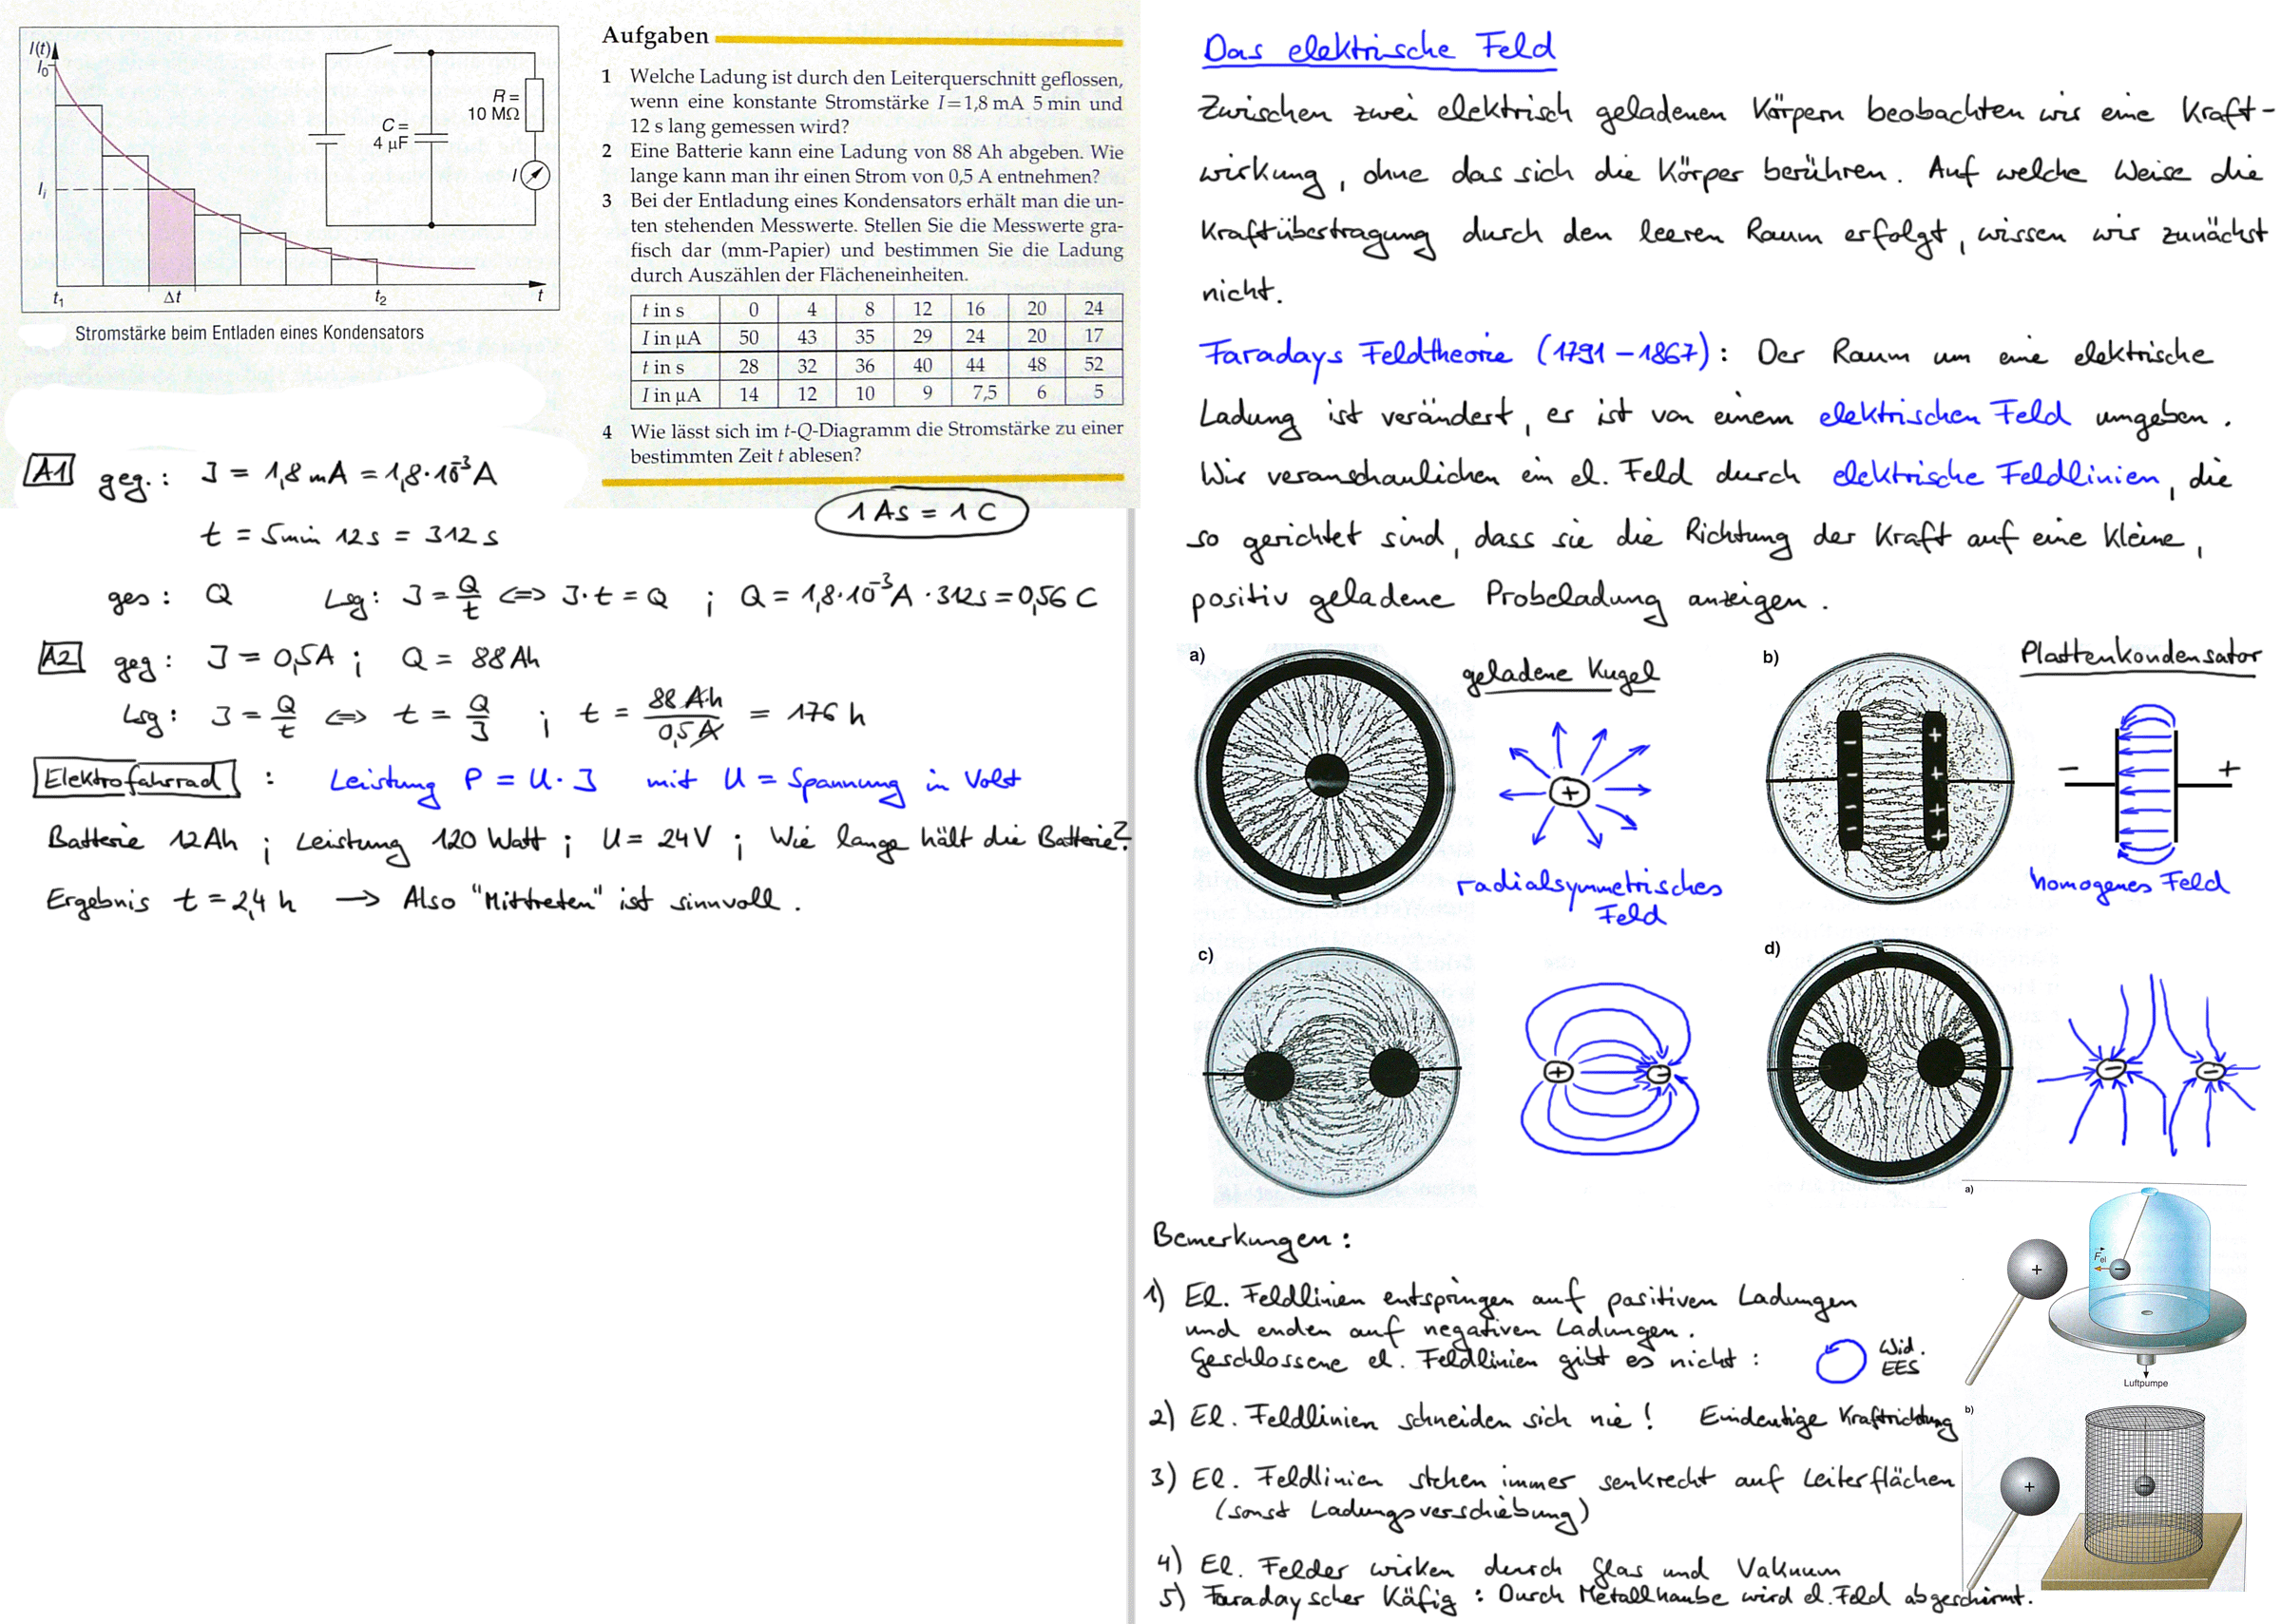 I(t)
I₀
Iᵢ
t₁
Δt
t₂
t
R =
10 MΩ
C =
4 µF
I
Stromstärke beim Entladen eines Kondensators
Aufgaben
1 Welche Ladung ist durch den Leiterquerschnitt geflossen,
wenn eine konstante Stromstärke I = 1,8 mA 5 min und
12 s lang gemessen wird?
2 Eine Batterie kann eine Ladung von 88 Ah abgeben. Wie
lange kann man ihr einen Strom von 0,5 A entnehmen?
3 Bei der Entladung eines Kondensators erhält man die un-
ten stehenden Messwerte. Stellen Sie die Messwerte gra-
fisch dar (mm-Papier) und bestimmen Sie die Ladung
durch Auszählen der Flächeneinheiten.
t in s 0 4 8 12 16 20 24
I in µA 50 43 35 29 24 20 17
t in s 28 32 36 40 44 48 52
I in µA 14 12 10 9 7,5 6 5
4 Wie lässt sich im t-Q-Diagramm die Stromstärke zu einer
bestimmten Zeit t ablesen?
1 As = 1 C
A1 geg.: I = 1,8 mA = 1,8·10⁻³ A
t = 5 min 12 s = 312 s
ges: Q Lsg: I = Q/t ⟺ I·t = Q ; Q = 1,8·10⁻³ A · 312 s = 0,56 C
A2 geg: I = 0,5 A ; Q = 88 Ah
Lsg: I = Q/t ⟺ t = Q/I ; t = 88 Ah/0,5 A = 176 h
Elektrofahrrad : Leistung P = U · I mit U = Spannung in Volt
Batterie 12 Ah ; Leistung 120 Watt ; U = 24 V ; Wie lange hält die Batterie?
Ergebnis t = 2,4 h → Also "Mittreten" ist sinnvoll.
Das elektrische Feld
Zwischen zwei elektrisch geladenen Körpern beobachten wir eine Kraft-
wirkung, ohne das sich die Körper berühren. Auf welche Weise die
Kraftübertragung durch den leeren Raum erfolgt, wissen wir zunächst
nicht.
Faradays Feldtheorie (1791 – 1867): Der Raum um eine elektrische
Ladung ist verändert, er ist von einem elektrischen Feld umgeben.
Wir veranschaulichen ein el. Feld durch elektrische Feldlinien, die
so gerichtet sind, dass sie die Richtung der Kraft auf eine kleine,
positiv geladene Probeladung anzeigen.
a)
geladene Kugel
+
radialsymmetrisches
Feld
b)
Plattenkondensator
− − − −
+ + + +
− +
homogenes Feld
c)
+ −
d)
− −
Bemerkungen:
1) El. Feldlinien entspringen auf positiven Ladungen
und enden auf negativen Ladungen.
Geschlossene el. Feldlinien gibt es nicht: Wid.
EES
2) El. Feldlinien schneiden sich nie! Eindeutige Kraftrichtung
3) El. Feldlinien stehen immer senkrecht auf Leiterflächen
(sonst Ladungsverschiebung)
4) El. Felder wirken durch Glas und Vakuum
5) Faradayscher Käfig: Durch Metallhaube wird el. Feld abgeschirmt.
a)
+
F⃗el
−
Luftpumpe
b)
+
−